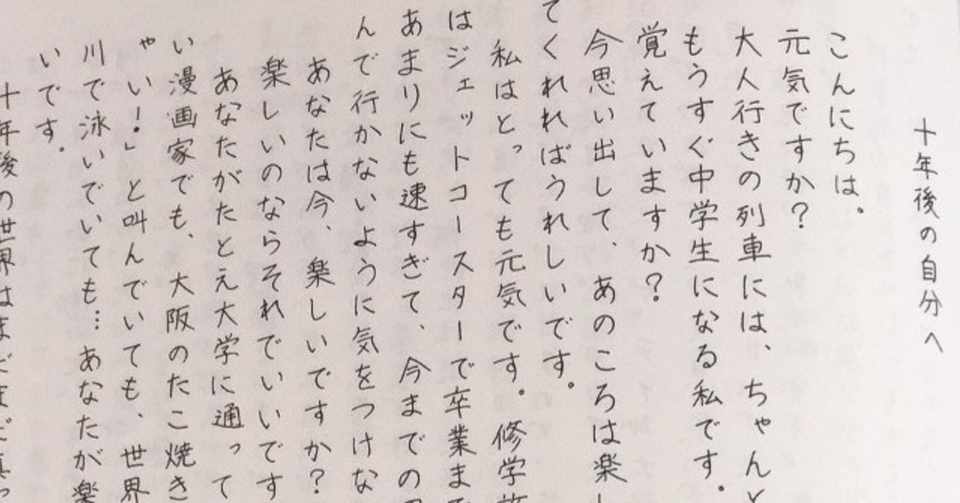 十年後の自分へ
こんにちは。
元気ですか?
大人行きの列車には、ちゃんと
もうすぐ中学生になる私です。
覚えていますか?
今思い出して、あのころは楽し
てくれればうれしいです。
私はとっても元気です。修学旅
はジェットコースターで卒業まで
あまりにも速すぎて、今までの思
んで行かないように気をつけな
あなたは今、楽しいですか?
楽しいのならそれでいいです
あなたがたとえ大学に通って
い漫画家でも、大阪のたこ焼き
ゃい!」と叫んでいても、世界
川で泳いでいても…あなたが楽
いです。
十年後の世界はまだまだ真っ